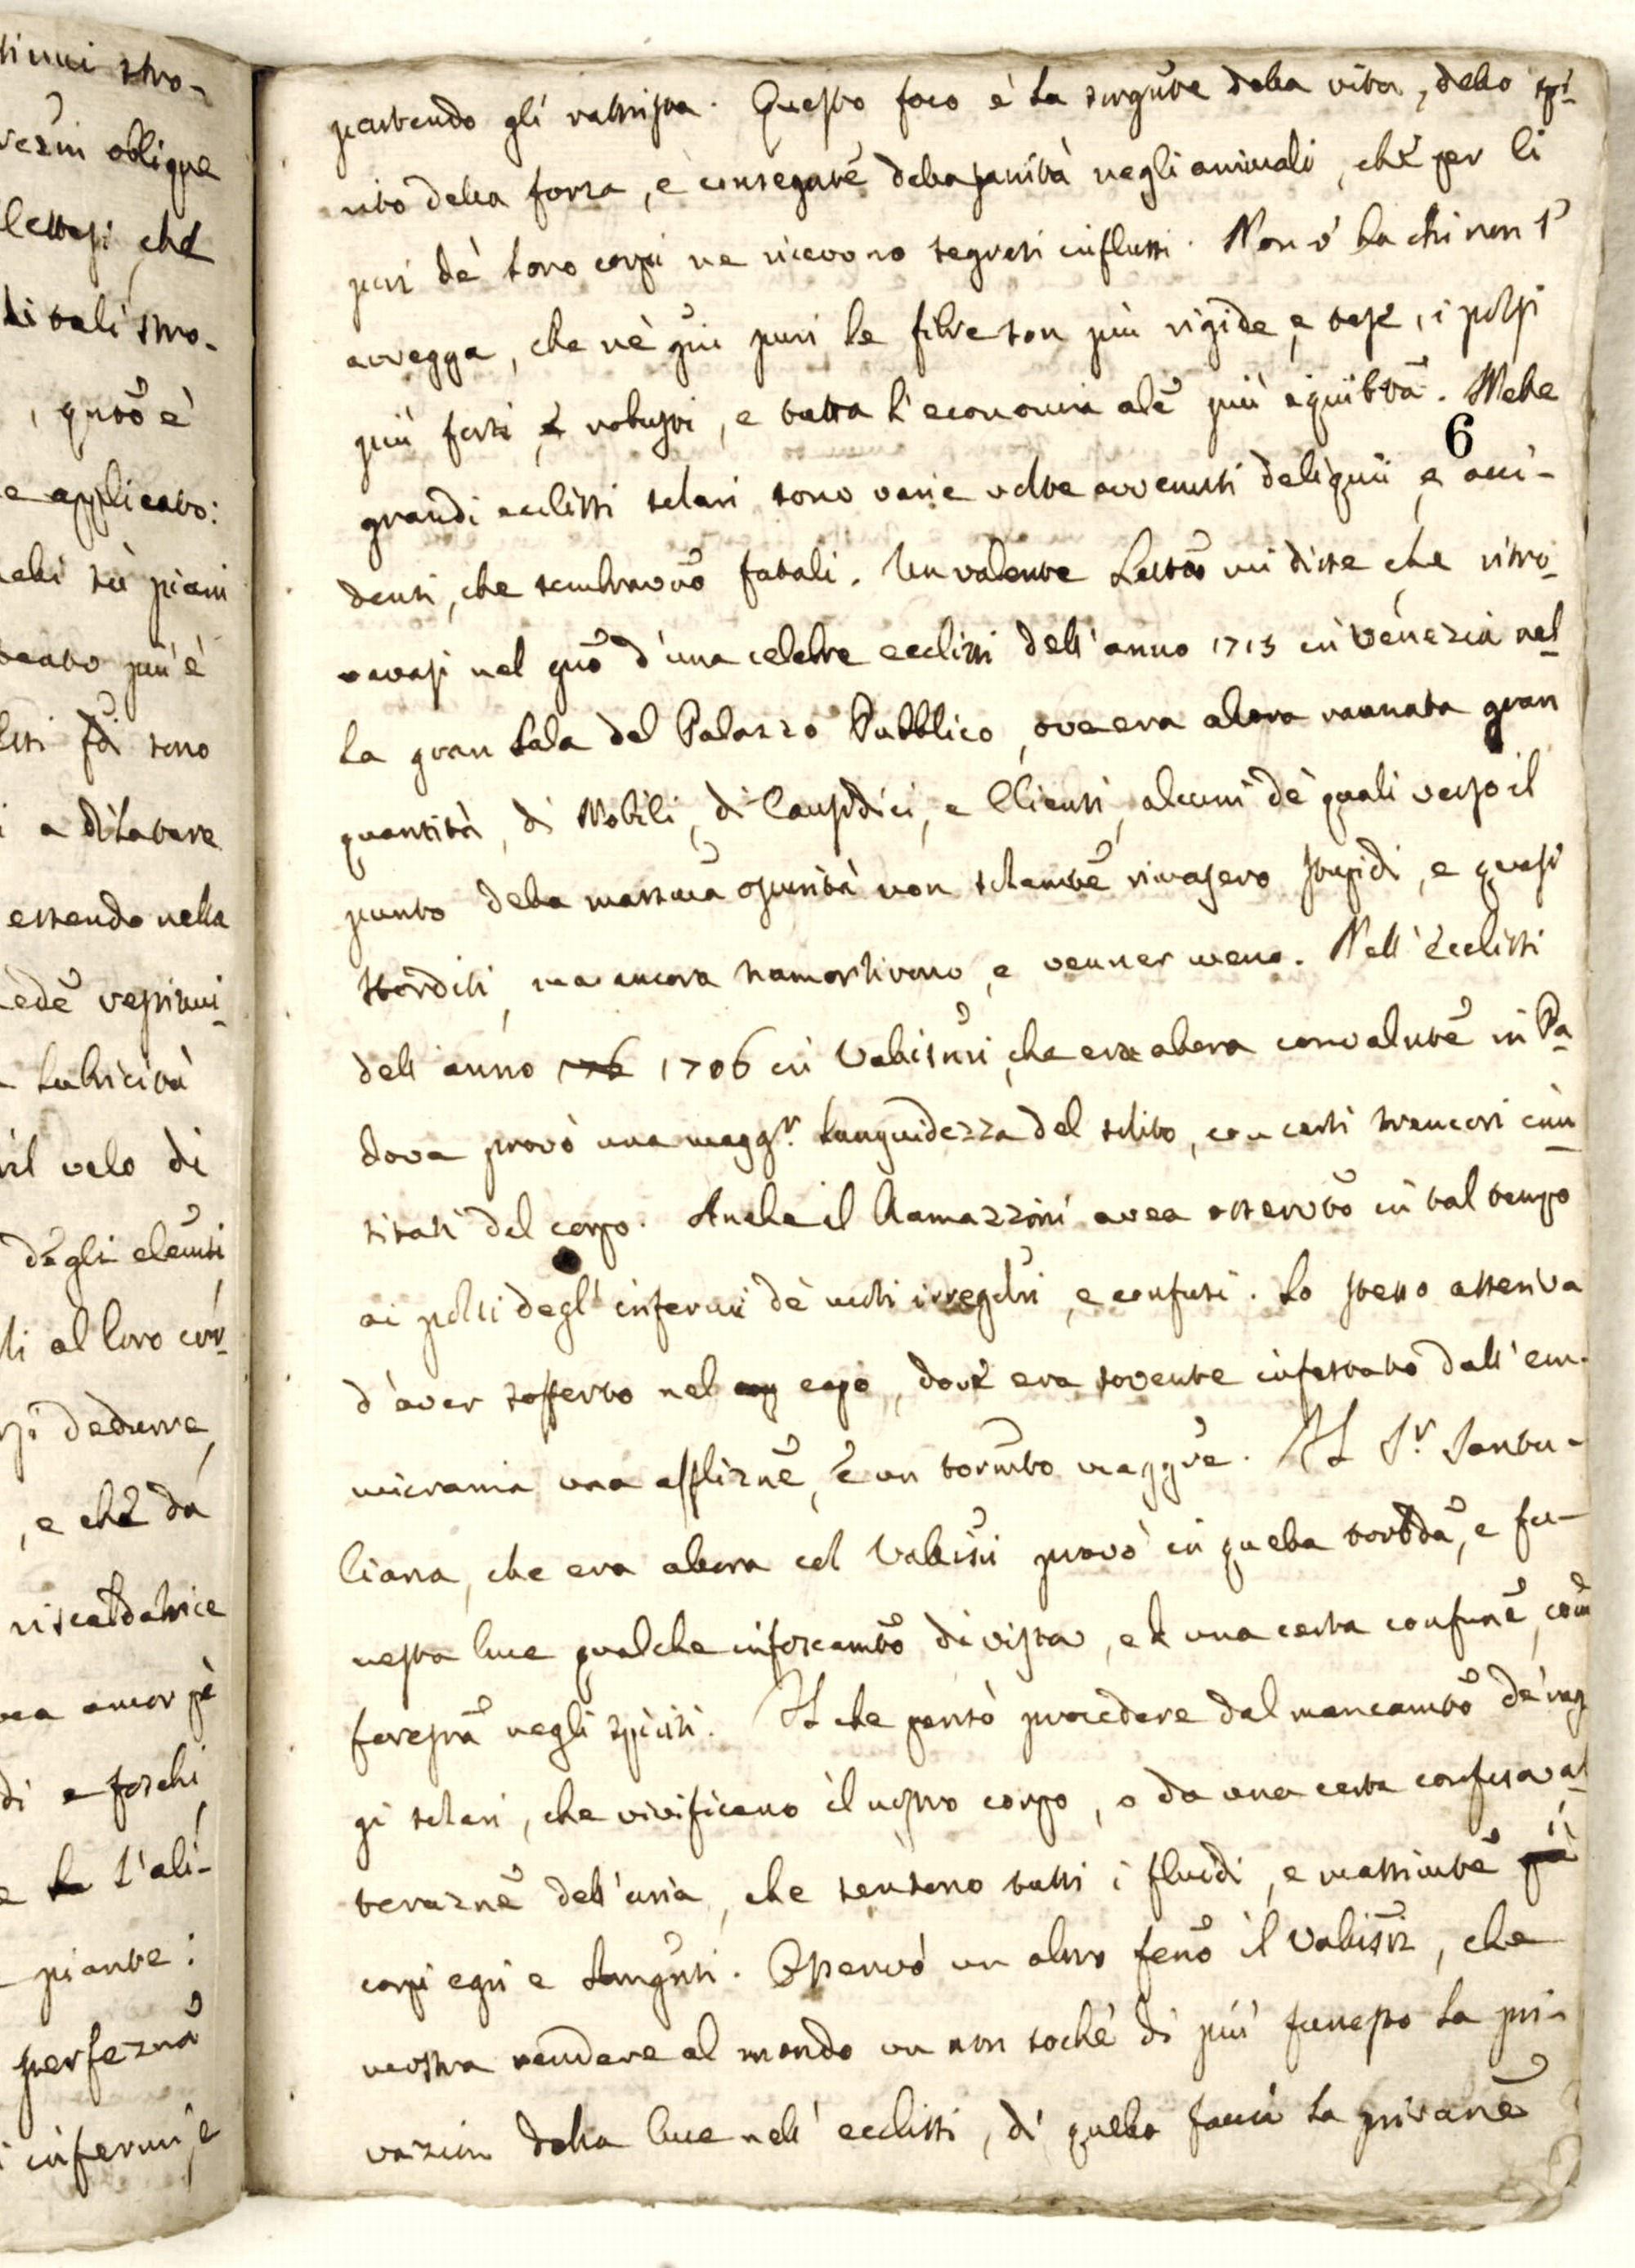 tinui stro-
verzni oblique
lettesi, che
di tali stro-
, qnto è
e applicato:
su piani
più è
sono
a dilatare
essendo nella
lubricità
il velo di
degli elemti
li al loro cor-
dedurre,
, e che da
riscaldatrice
ancor pè
di e foschi
l'ali-
piante:
perfezna
infermi, e
partendo gli rattrista. Questo foco è la sorgnte della vita, dello spi-
rito della forza, e consegnte della sanità negli animali, che per li
pori de' loro corpi ne ricevono segreti influssi. Non v'ha chi non s'
avvegga, che ne' gni puri le fibre son più rigide, e tese, i polsi
più forti e robusti, e tutta l'economia ale più equilbta. Nelle
6
grandi ecclissi solari sono varie volte avvenuti deliquii, e acci-
denti, che sembravno fatali. Un valente Lettore mi disse che ritro-
vavasi nel gno d'una celebre ecclissi dell'anno 1713 in Venezia nel-
la gran Sala del Palazzo Pubblico, ove era allora raunata gran
quantità, di Nobili, di Causidici, e Clienti, alcuni de' quali verso il
punto della massima oscurità non solamte rimasero stupidi, e quasi
storditi, ma ancora tramortirono, e venner meno. Nell'Ecclissi
dell'anno 176 1706 il Valisnri, che era allora convalnte in Pa-
dova provò una maggr. languidezza del solito, con certi tremori inu-
sitati del corpo. Anche il Ramazzini avea osservto in tal tempo
ai polsi degl'infermi de' moti irreglri, e confusi. Lo stesso asseriva
d'aver sofferto nel cap capo, dove era sovente infestato dall'em-
micrania una afflizne, e un tormto maggre. Il Sr. Santu-
liana, che era allora col Valisni provò in quella torbda, e fu-
nesta luce qualche infoscamto di vista, ed una certa confusne, com
forespra negli spiriti. Il che pensò procedere dal mancamto de' rag-
gi solari, che vivificano il nostro corpo, o da una certa confusa al-
terazne dell'aria, che sentono tutti i fluidi, e massimte più i
corpi egri e langnti. Osservò un altro feno il Valisni, che
mostra rendere al mondo un non sochè di più funesto la pri-
vazion della luce nell'ecclissi, di quello faccia la privazne